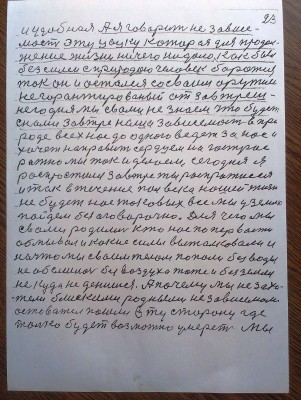 23
и удобная А я говорит не завис-
мост эту цацку которая для продол-
жение жизни ничего ни дало, как был
без силен с природою человек боротися
ток он и остался со своим оружим
не горантированый от завтрешн-
него дня мы свами не знаем что будет
снами завтре наша зависемост в при
роде всех нас до одного ведет за нос и
хочет направит сердцем на
ратно мы ток и делоем, сегодня я
роспростими завтре ты роспротисся
и ток в течение пов века нашей жизни
не будет нас токовых все мы у землю
пойдем безаговорочно. Для чего мы
свами родилис кто нас по первасти
обмивал и какие силы виталковали и
начто мы своим телом попали без воды
не обселинас без воздуха тоже и без земли
не куда не денишся. А почему мы не захо-
тели блискеми родными не зависемом
остоватся пошли в ту сторону где
толко будет возможно умерет мы